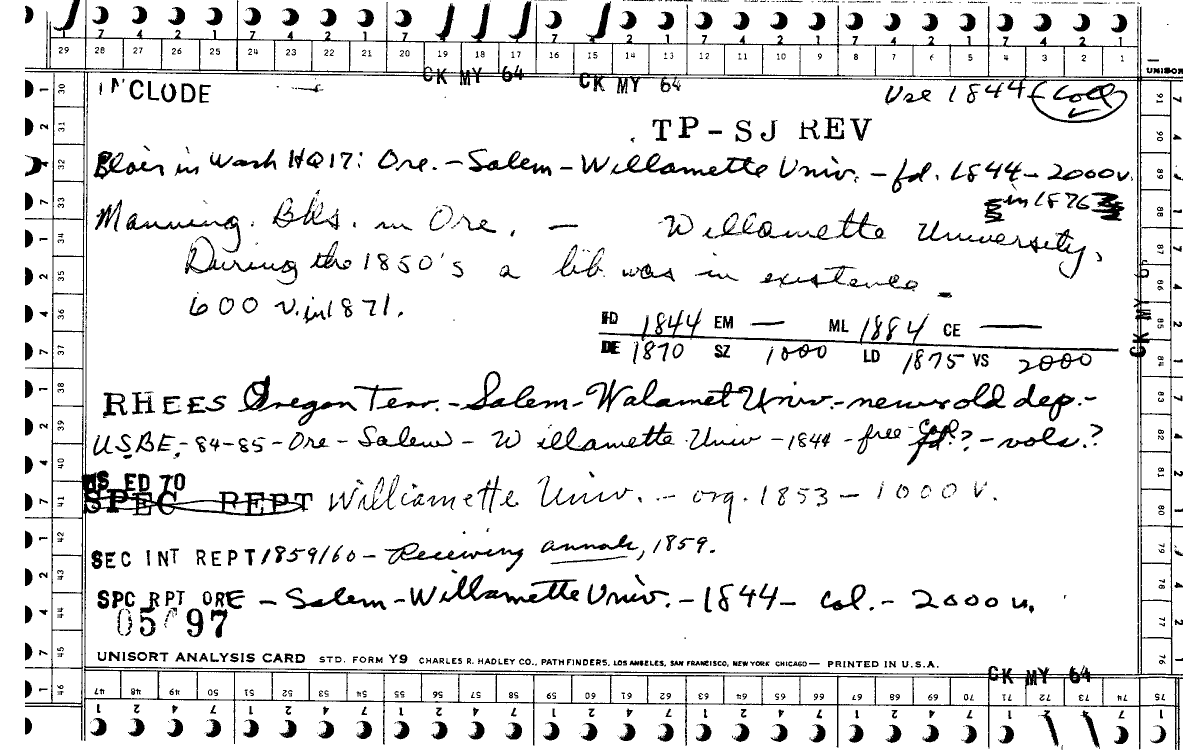 7 4 2 1 7 4 2 1 7 4 2 1 7 4 2 1 7 4 2 1
29 28 27 26 25 24 23 22 21 20 19 18 17 16 15 14 13 12 11 10 9 8 7 6 5 4 3 2 1
CK MY 64 CK MY 64 UNISOR
INCLUDE Use 1844 Coll
TP-SJ REV
Blair in Wash HQ17: Ore. - Salem - Willamette Univ. - fd. 1844 - 2000 v.
in 1876
Manning. Bks. in Ore. - Willamette University.
During the 1850's a lib was in existence.
600 v. in 1871.
FD 1844 EM — ML 1884 CE —
DE 1870 SZ 1000 LD 1875 VS 2000
RHEES Oregon Terr. - Salem - Walamet Univ. - news old dep. -
USBE, -84-85 - Ore - Salem - Willamette Univ - 1844 - free - Col fd.? - vols.?
US ED 70
SPEC REPT Williamette Univ. - org. 1853 - 1000 v.
SEC INT REPT 1859/60 - Receiving annals, 1859.
SPC RPT ORE - Salem - Willamette Univ. - 1844 - Col. - 2000 v.
05 97
UNISORT ANALYSIS CARD STD. FORM Y9 CHARLES R. HADLEY CO., PATHFINDERS, LOS ANGELES, SAN FRANCISCO, NEW YORK CHICAGO — PRINTED IN U.S.A.
CK MY 64
46 47 48 49 50 51 52 53 54 55 56 57 58 59 60 61 62 63 64 65 66 67 68 69 70 71 72 73 74 75
1 2 4 7 1 2 4 7 1 2 4 7 1 2 4 7 1 2 4 7 1 2 4 7 1 2 4 7 1